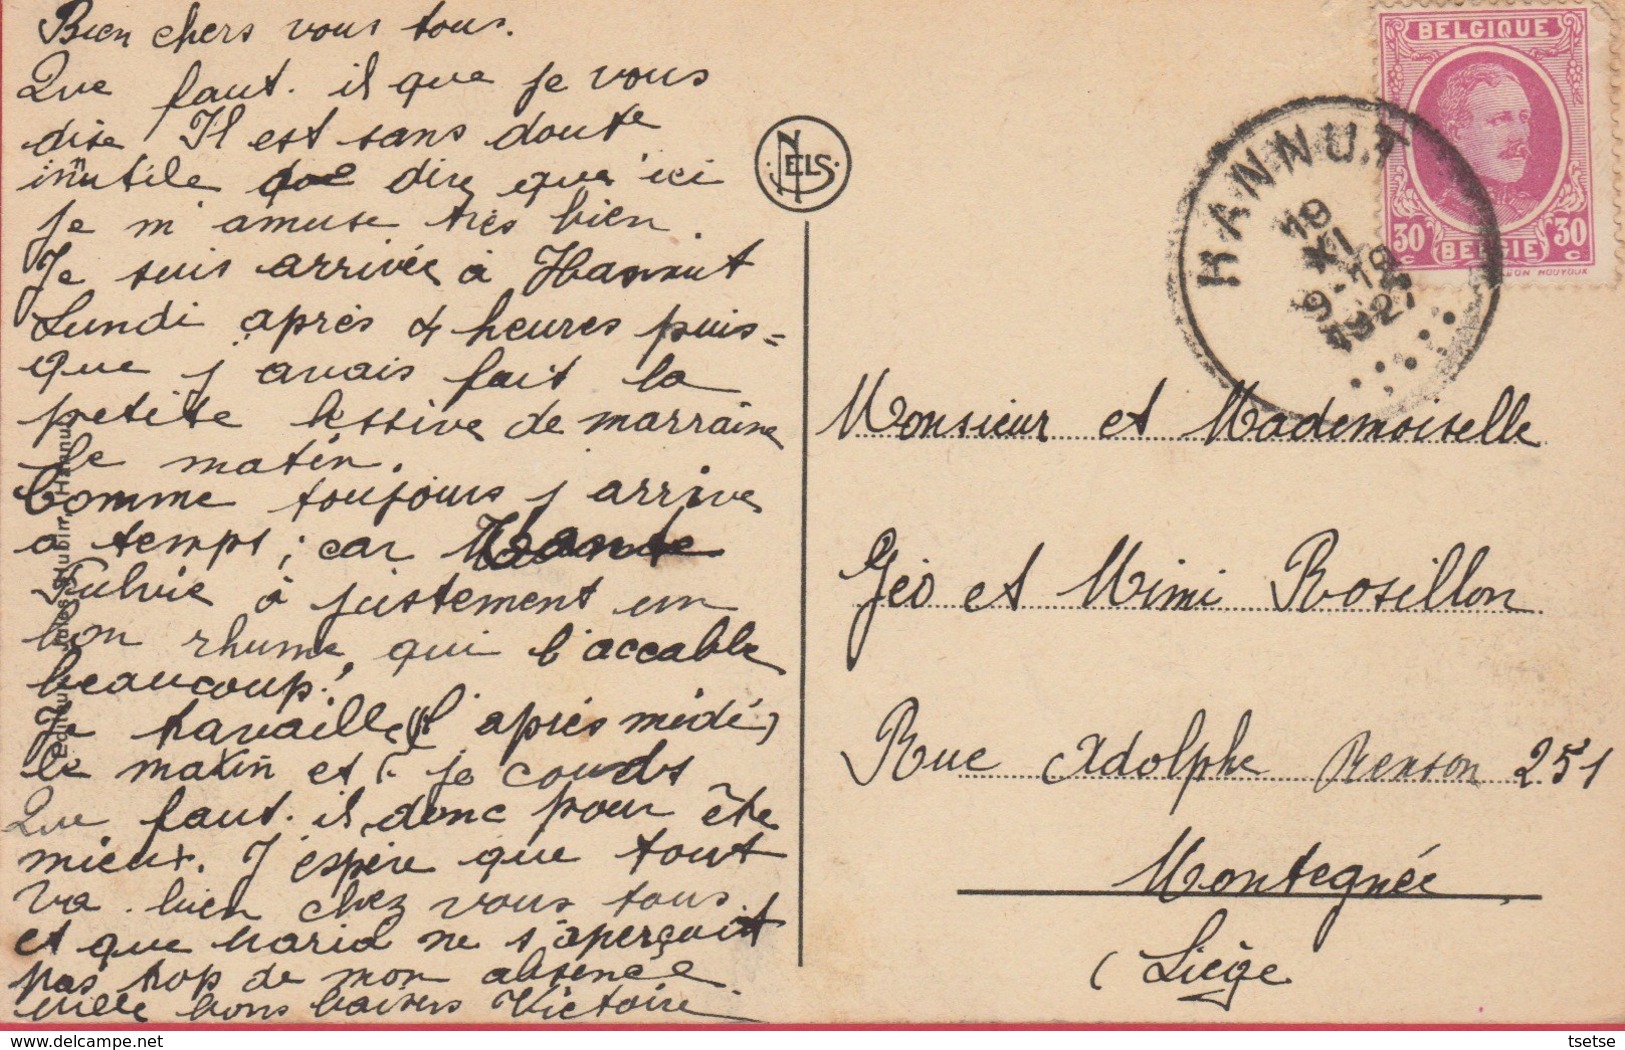 Bien chers vous tous.
Que faut-il que je vous
dise Il est sans doute
inutile de dire que ici
je m'amuse très bien.
Je suis arrivée à Hannut
Lundi après 4 heures puis=
que j'avais fait la
petite lessive de marraine
le matin.
Comme toujours j'arrive
a temps; car
Fulvie à justement un
bon rhume, qui l'accable
beaucoup!
Je travaille (l'après midi)
le matin et je couds
Que faut-il donc pour être
mieux. J'espère que tout
va bien chez vous tous.
et que maria ne s'aperçoit
pas trop de mon absence.
mille bons baisers Victoire
NELS
BELGIQUE
30 c
BELGIE
30 c
HANNUT
19
XI
9-19
1927
Monsieur et Mademoiselle
Géo et Mimi Rosillon
Rue Adolphe Renson 251
Montegnée
(Liège
tsetse